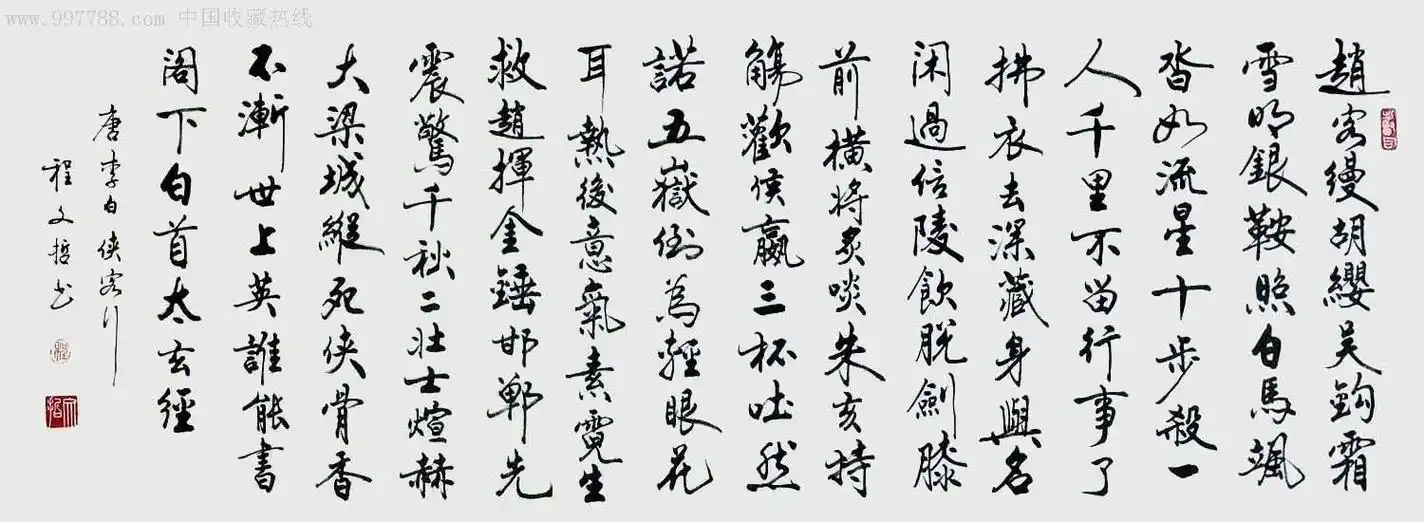 www.997788.com 中国收藏热线
趙客縵胡纓吴鈎霜
雪明銀鞍照白馬颯
沓如流星十步殺一
人千里不留行事了
拂衣去深藏身與名
閑過信陵飲脫劍膝
前橫將炙啖朱亥持
觴歡侯嬴三杯吐然
諾五嶽倒為輕眼花
耳熱後意氣素霓生
救趙揮金錘邯鄲先
震驚千秋二壯士煊赫
大梁城縱死俠骨香
不漸世上英誰能書
閣下白首太玄經
唐李白俠客行
程文哲书